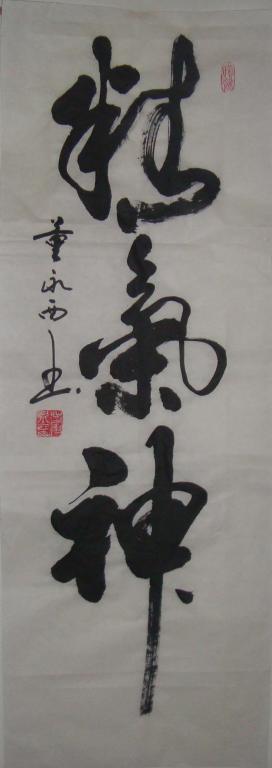 精氣神
董永西书